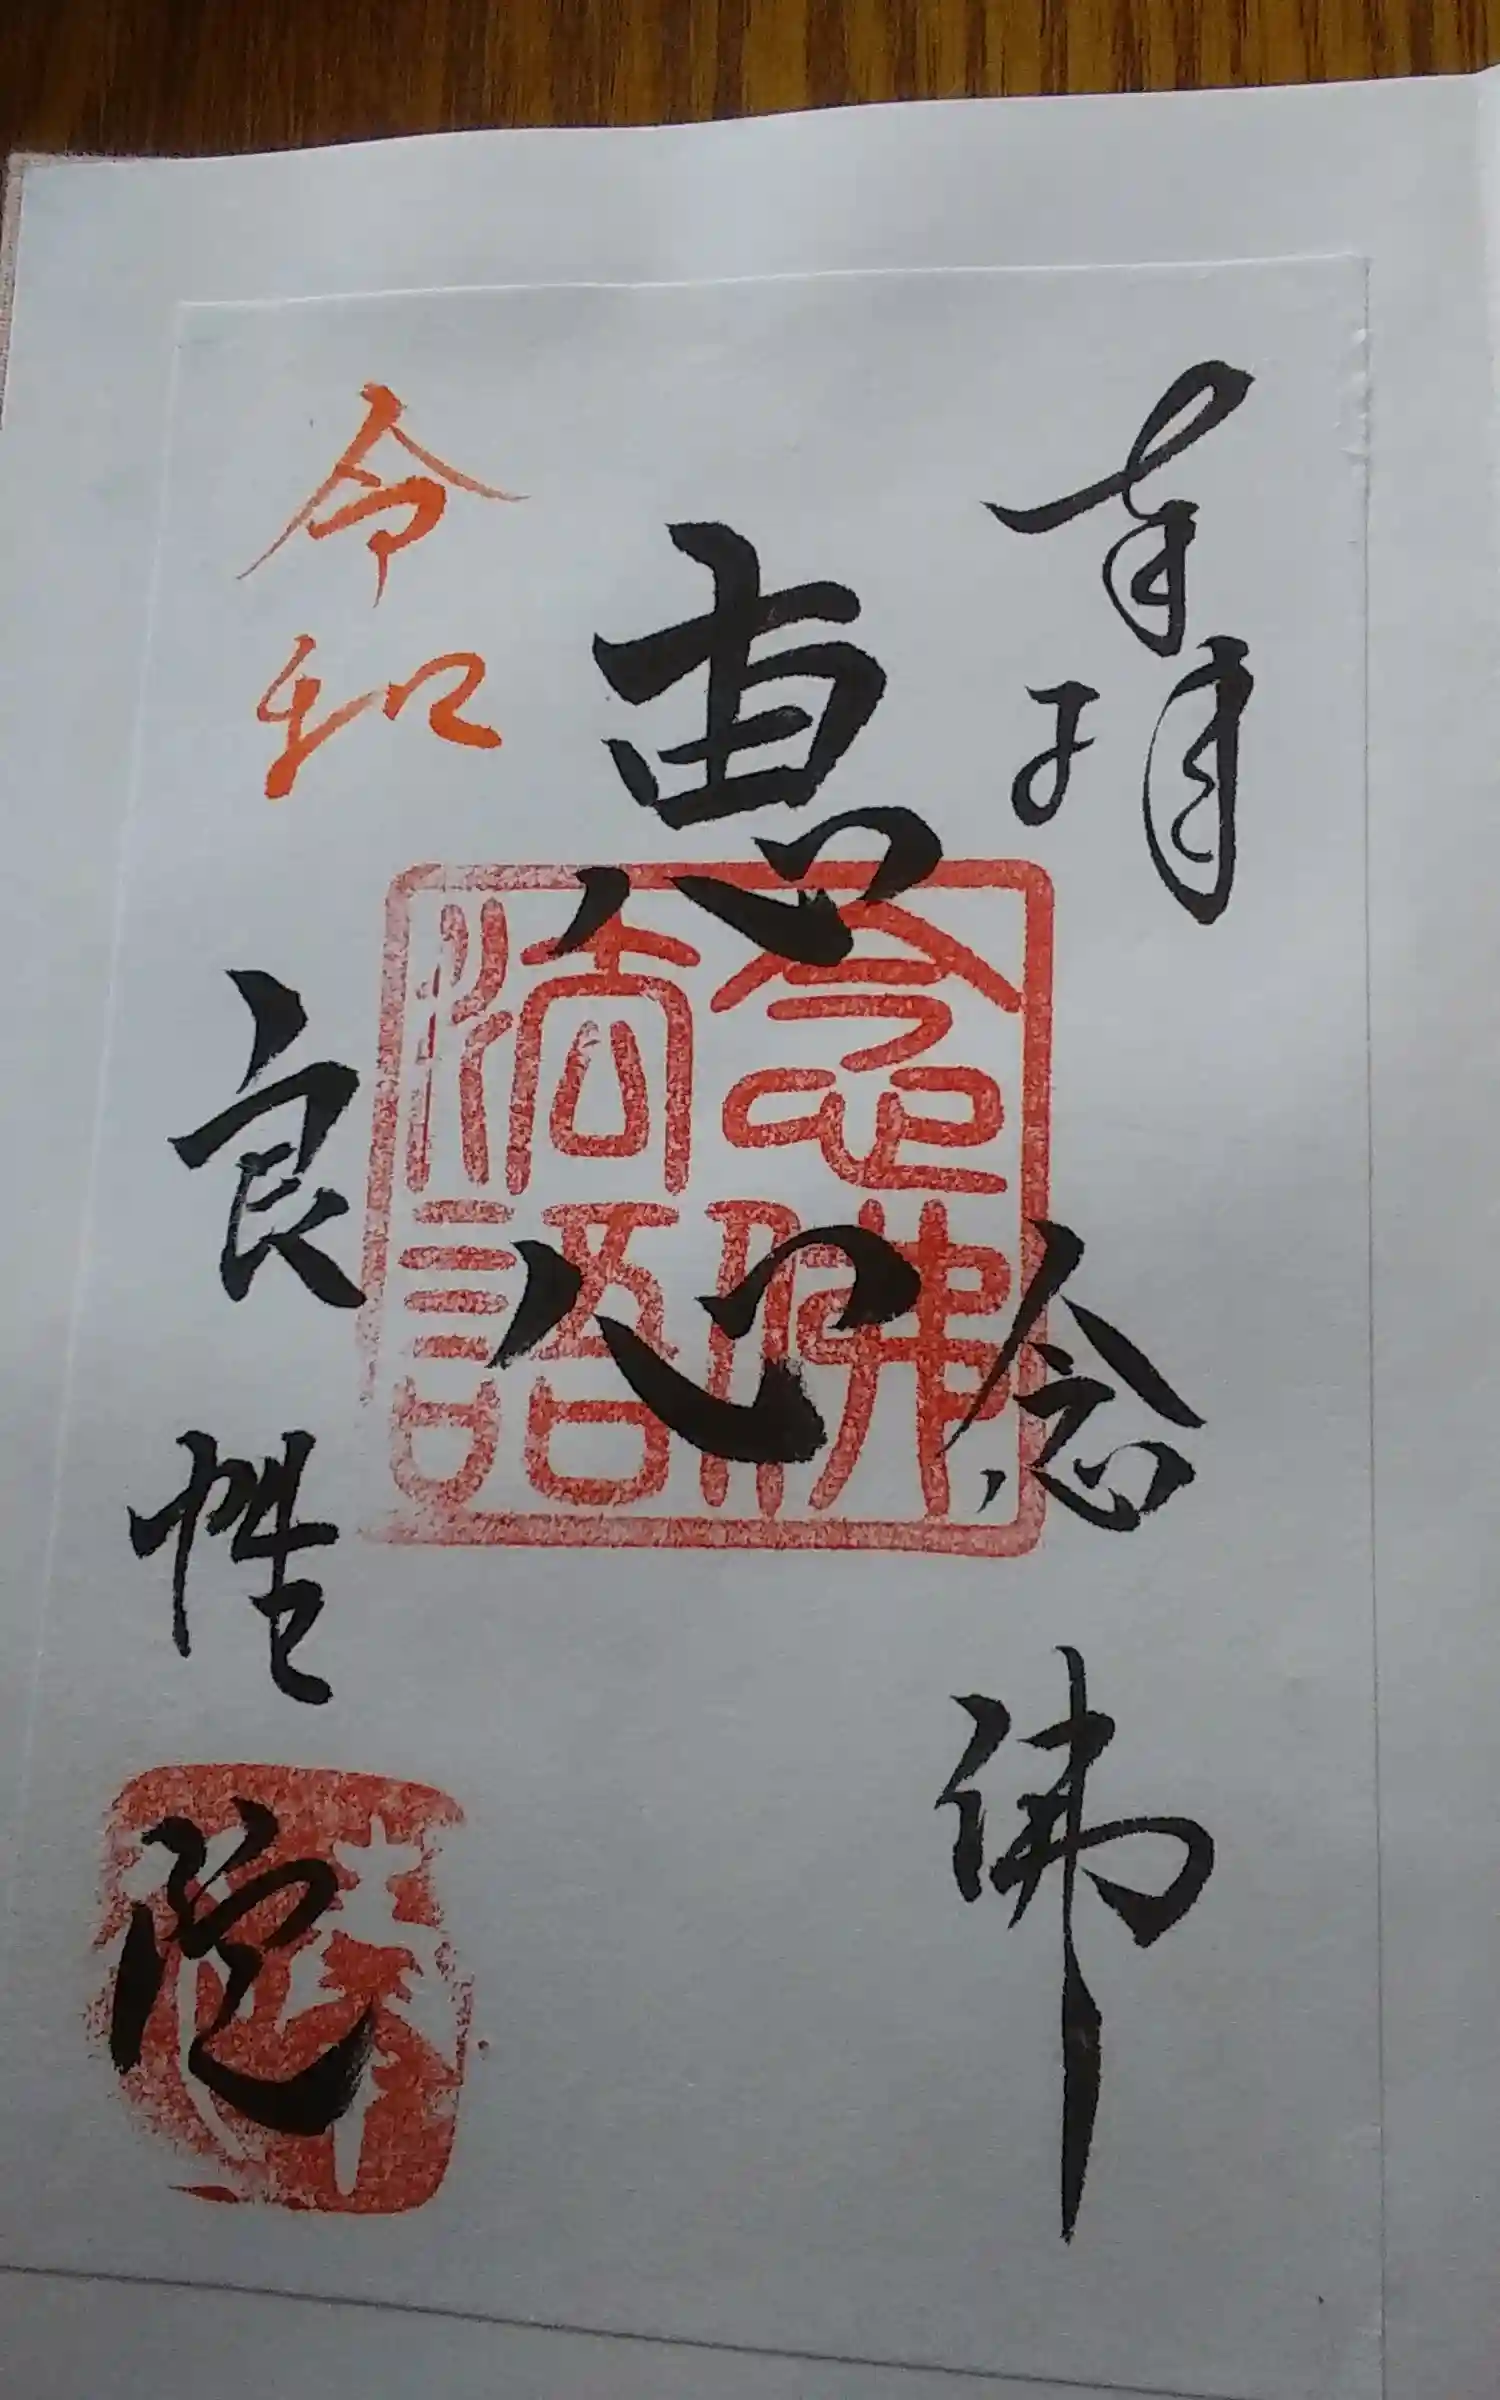 奉拝
念佛
恵心
念佛
法語
令和
良性院